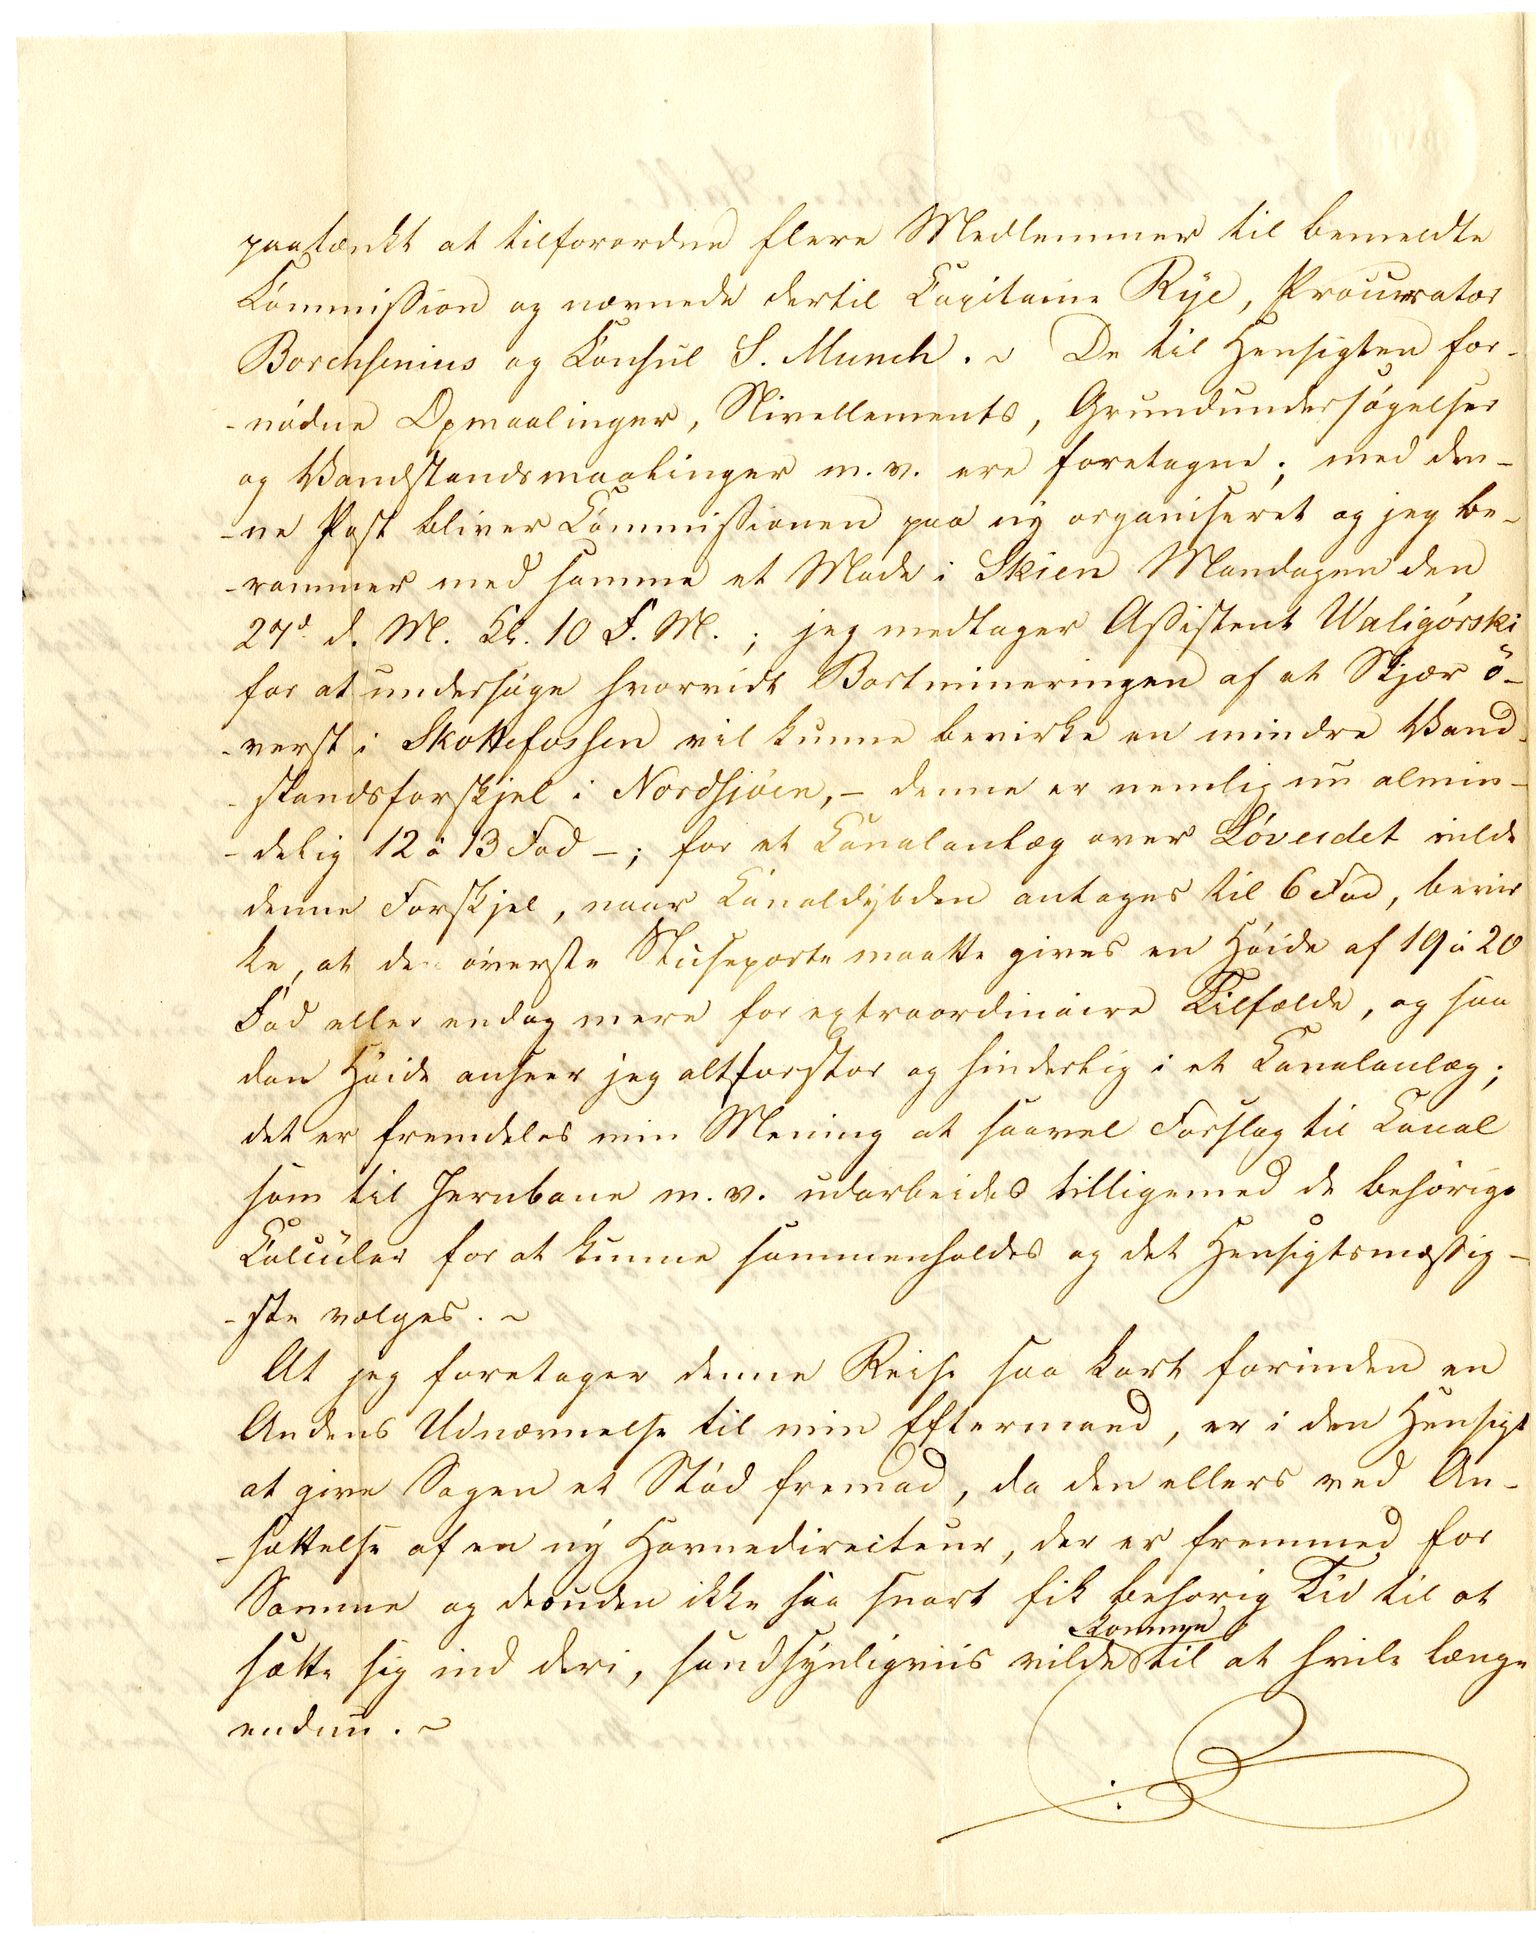 paatænkt at tilforordne flere Medlemmer til bemeldte
Commission og nævnede dertil Capitaine Rye, Procurator
Borchsenius og Consul S. Munch. ~ De til Hensigten for-
-nödne Opmaalinger, Nivellements, Grundundersögelser
og Vandstandsmaalinger m. v. ere foretagne; med den-
-ne Post bliver Commissionen paa ny organiseret og jeg be-
-rammer med samme et Möde i Skien Mandagen den
27d. d. M. Kl. 10 F. M.; jeg medtager Assistent Waligórski
for at undersöge hvorvidt Bortmineringen af et Skjær ö-
-verst i Skottefossen vil kunne bevirke en mindre Vand-
-standsforskjel i Nordsjöen, - denne er nemlig nu almin-
-delig 12 à 13 Fod -; for et Canalanlæg over Löveidet vilde
denne Forskjel, naar Canaldybden antages til 6 Fod, bevir
ke, at de överste Sluseporte maatte gives en Höide af 19 à 20
Fod eller endog mere for extraordinaire Tilfælde, og saa
dan Höide anseer jeg altforstor og hinderlig i et Canalanlæg;
det er fremdeles min Mening at saavel Forslag til Canal
som til Jernbane m. v. udarbeides tilligemed de behörige
Calculer for at kunne sammenholdes og det Hensigtsmæssig-
-ste vælges. ~
At jeg foretager denne Reise saa kort forinden en
Andens Udnævnelse til min Eftermand, er i den Hensigt
at give Sagen et Stöd fremad, da den ellers ved An-
-sættelse af en ny Havnedirecteur, der er fremmed for
Samme og desuden ikke saa snart fik behörig Tid til at
sætte sig ind deri, sandsynligviis vilde komme til at hvile længe
endnu. ~